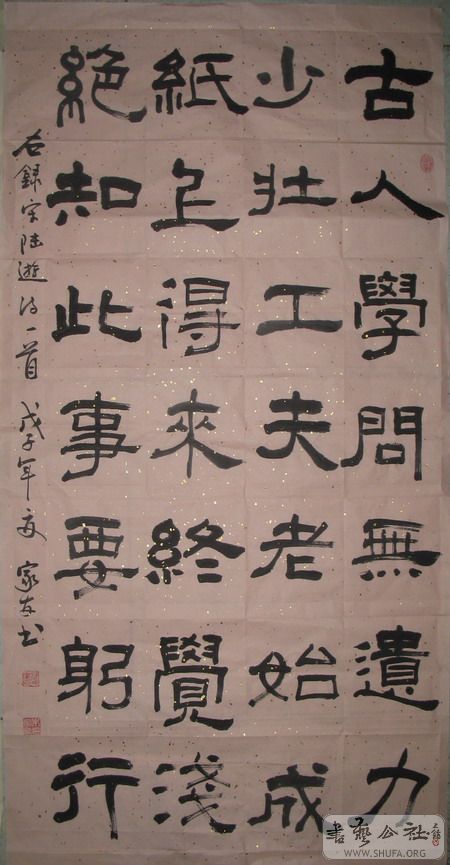 古人學問無遺力
少壯工夫老始成
紙上得來終覺淺
絶知此事要躬行
右錄宋陸遊詩一首 戊子年夏 家友书
書藝公社
WWW.SHUFA.ORG